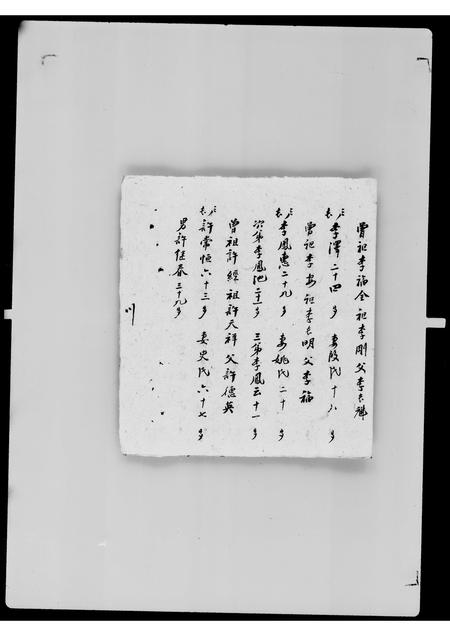 曾祖李福全 祖李剛 父李長魁
李澤二十四歲 妻段氏十八歲
曾祖李安 祖李長明 父李福
長 李鳳惠二十九歲 妻姚氏二十歲
次弟李鳳池二十二歲 三弟李鳳云十一歲
曾祖許經 祖許天祥 父許德英
長 許常恒六十三歲 妻史氏六十七歲
男許佳春三十九歲